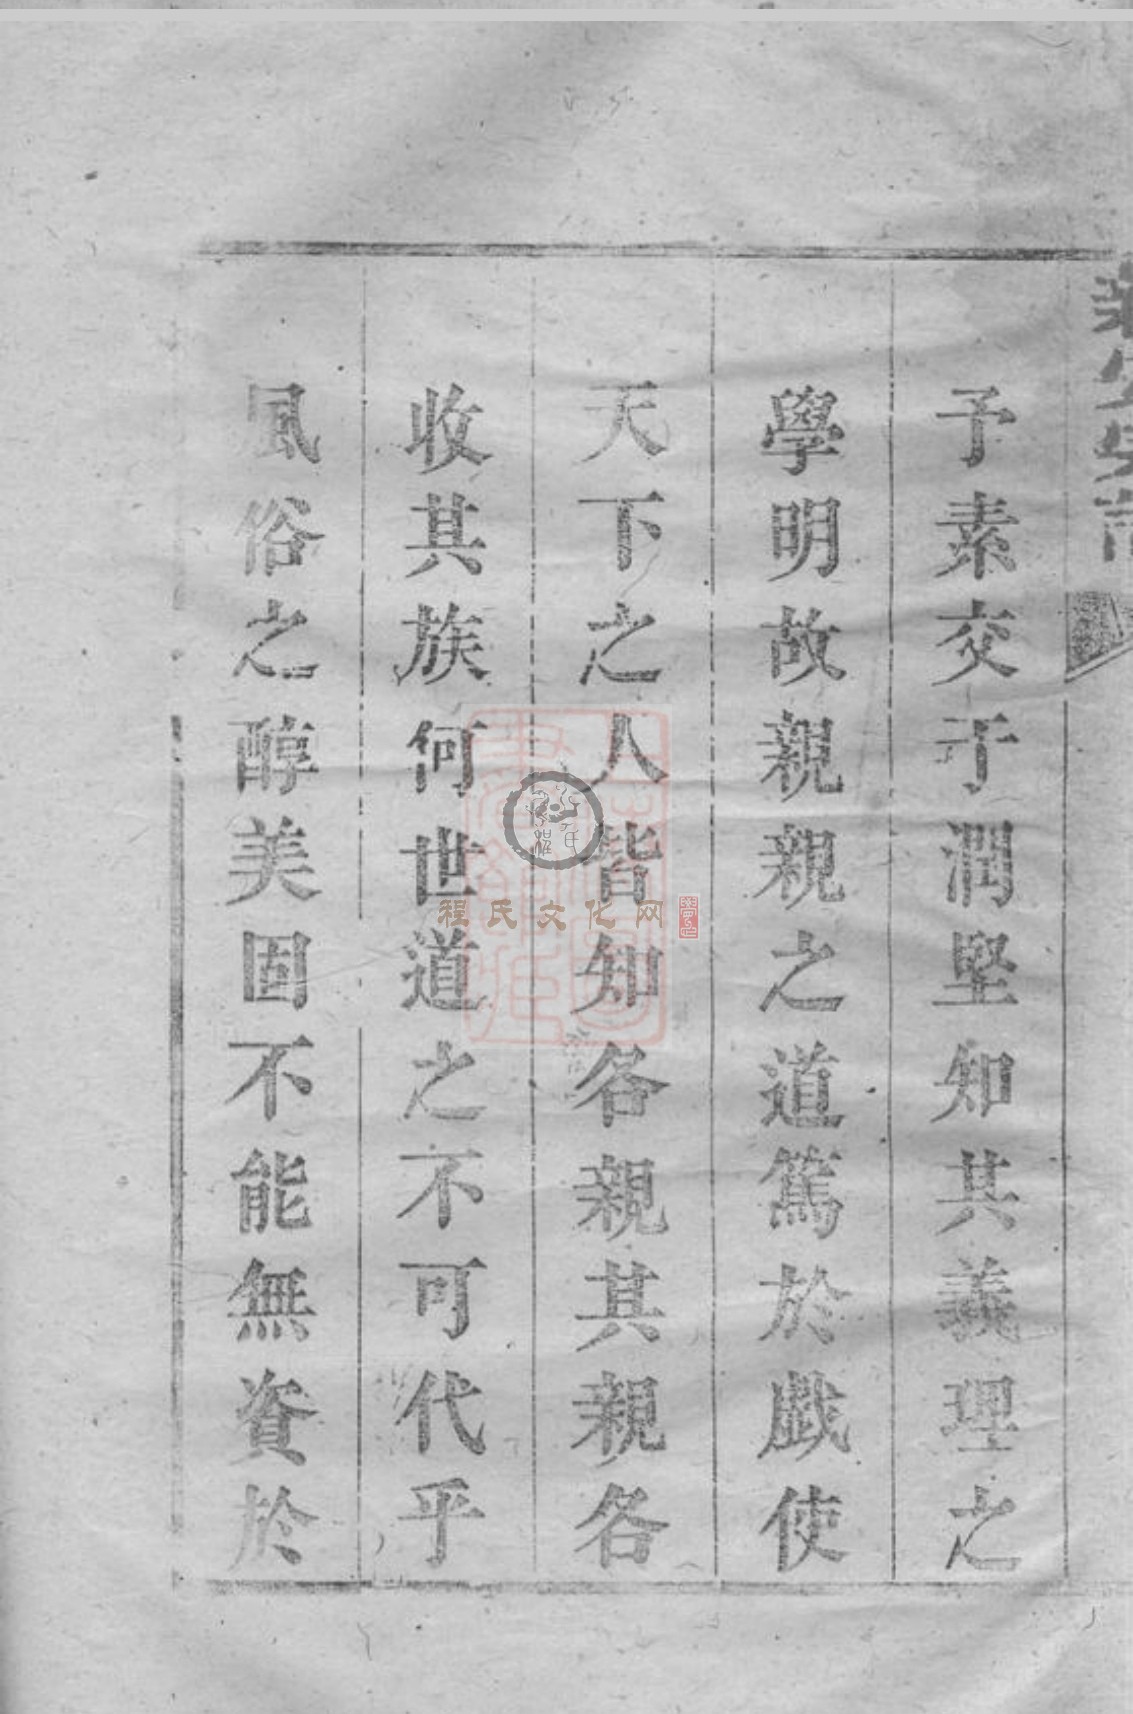 予素交于潤堅知其義理之
學明故親親之道篤於戲使
天下之人皆知各親其親各
收其族何世道之不可代乎
風俗之醇美固不能無資於
程氏文化网